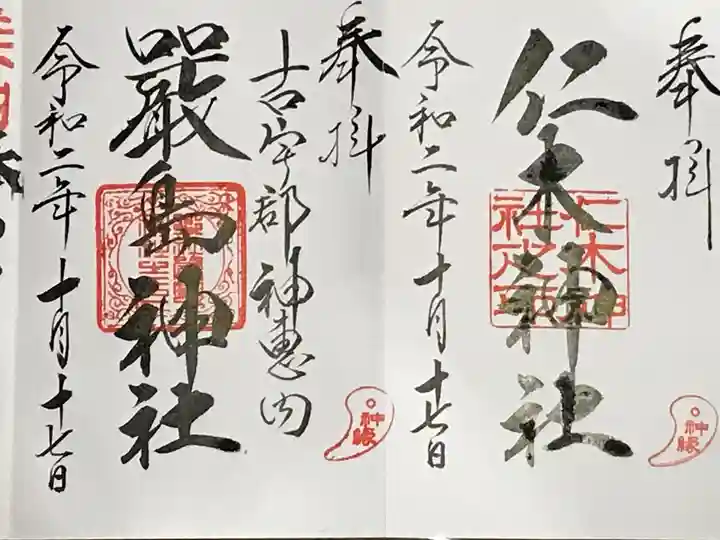 奉拝
仁木神社
仁木神社之印
令和二年十月十七日
神縁
奉拝
古宇郡神恵内
嚴島神社
令和二年十月十七日
神縁